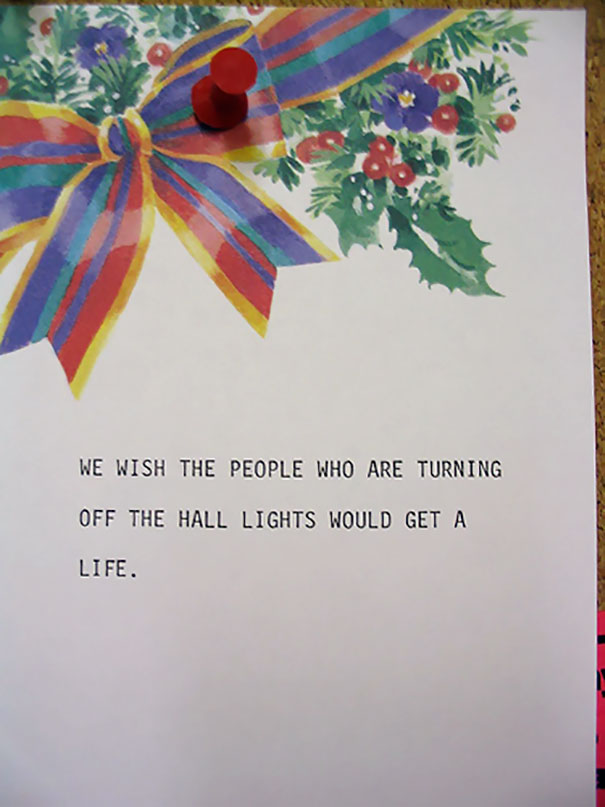 WE WISH THE PEOPLE WHO ARE TURNING
OFF THE HALL LIGHTS WOULD GET A
LIFE.